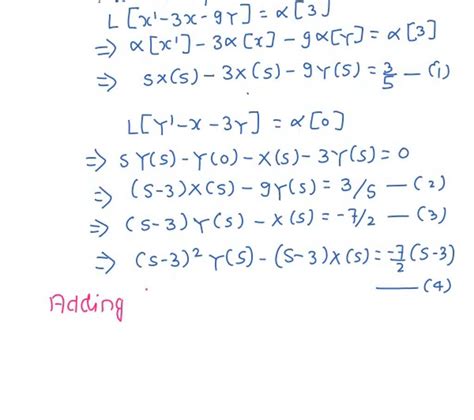 L[x'-3x-9Y] = α[3]
⇒ α[x'] - 3α[x] - 9α[Y] = α[3]
⇒ sx(s) - 3x(s) - 9Y(s) = 3/s — (1)
L[Y'-x-3Y] = α[0]
⇒ sY(s) - Y(0) - x(s) - 3Y(s) = 0
⇒ (s-3)x(s) - 9Y(s) = 3/s — (2)
⇒ (s-3)Y(s) - x(s) = -7/2 — (3)
⇒ (s-3)² Y(s) - (s-3)x(s) = -7/2 (s-3)
— (4)
Adding